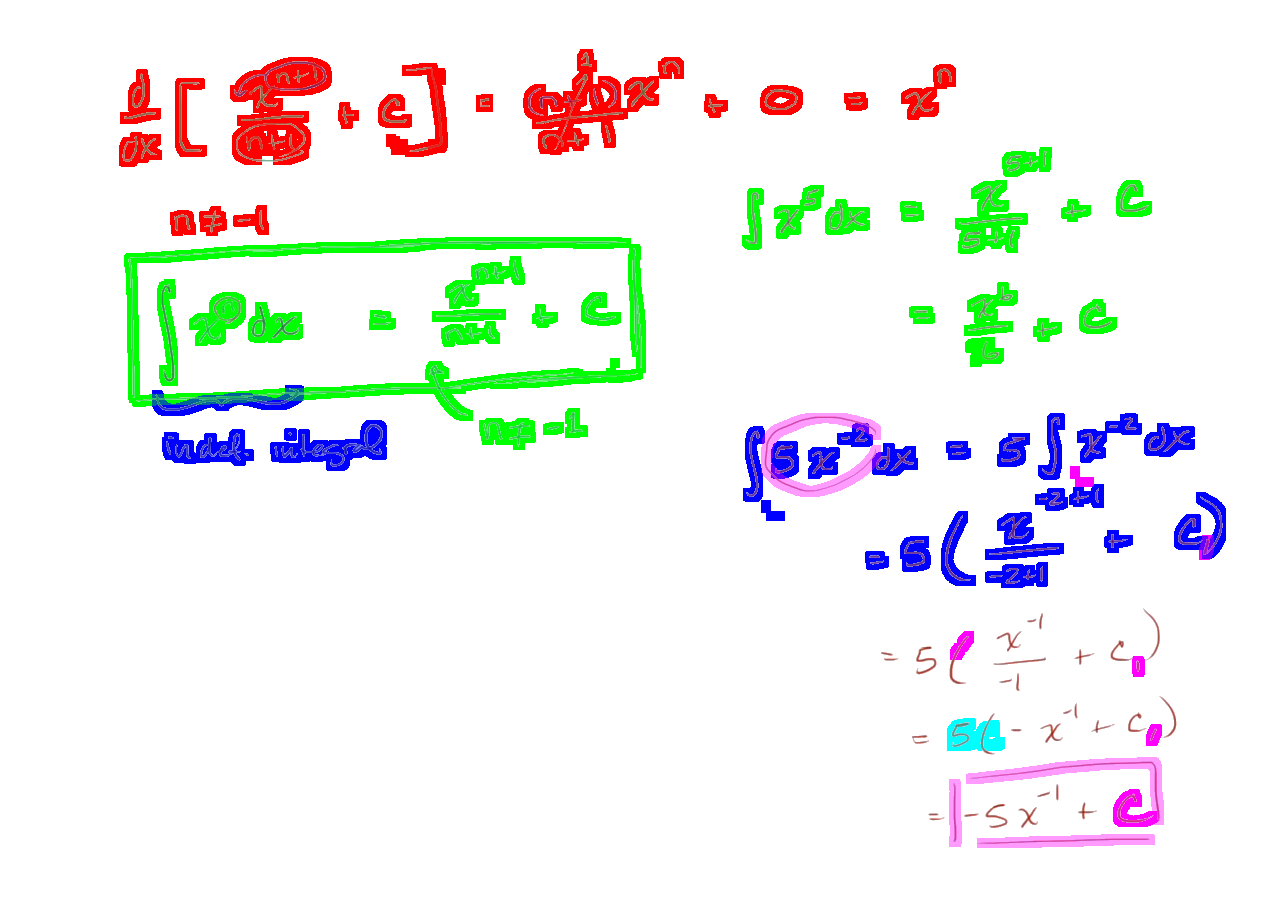 d/dx [ x^(n+1)/(n+1) + C ] = (n+1)x^n/(n+1) + 0 = x^n
n ≠ -1
∫ x^n dx = x^(n+1)/(n+1) + C
n ≠ -1
indef. integral
∫ x^5 dx = x^(5+1)/(5+1) + C
= x^6/6 + C
∫ 5x^(-2) dx = 5 ∫ x^(-2) dx
= 5 ( x^(-2+1)/(-2+1) + C₁ )
= 5 ( x^(-1)/(-1) + C₁ )
= 5 ( - x^(-1) + C₁ )
= -5x^(-1) + C